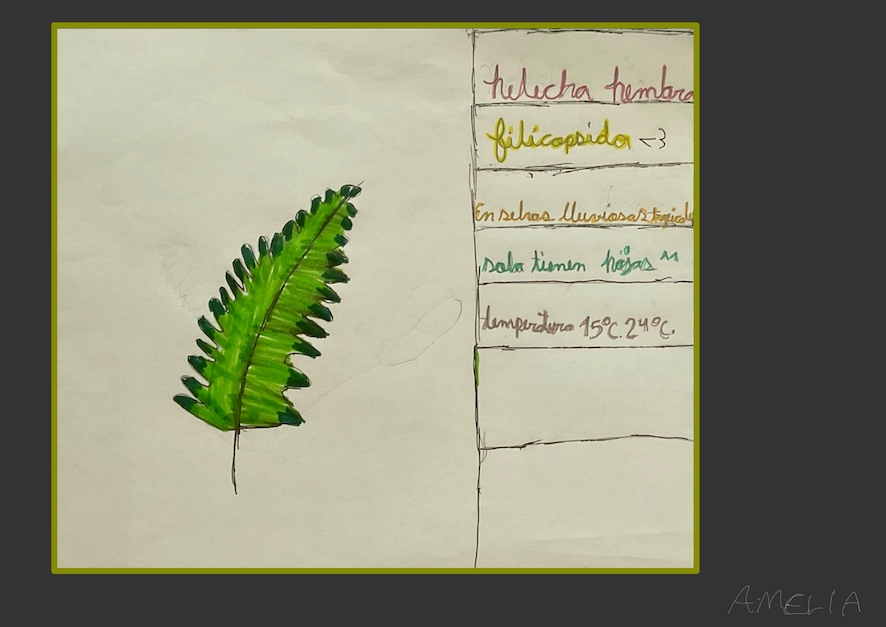 helecha hembra
filicopsida <3
En selvas lluviosas tropicale
solo tienen hojas ^^
temperatura 15°C. 24°C.
AMELIA